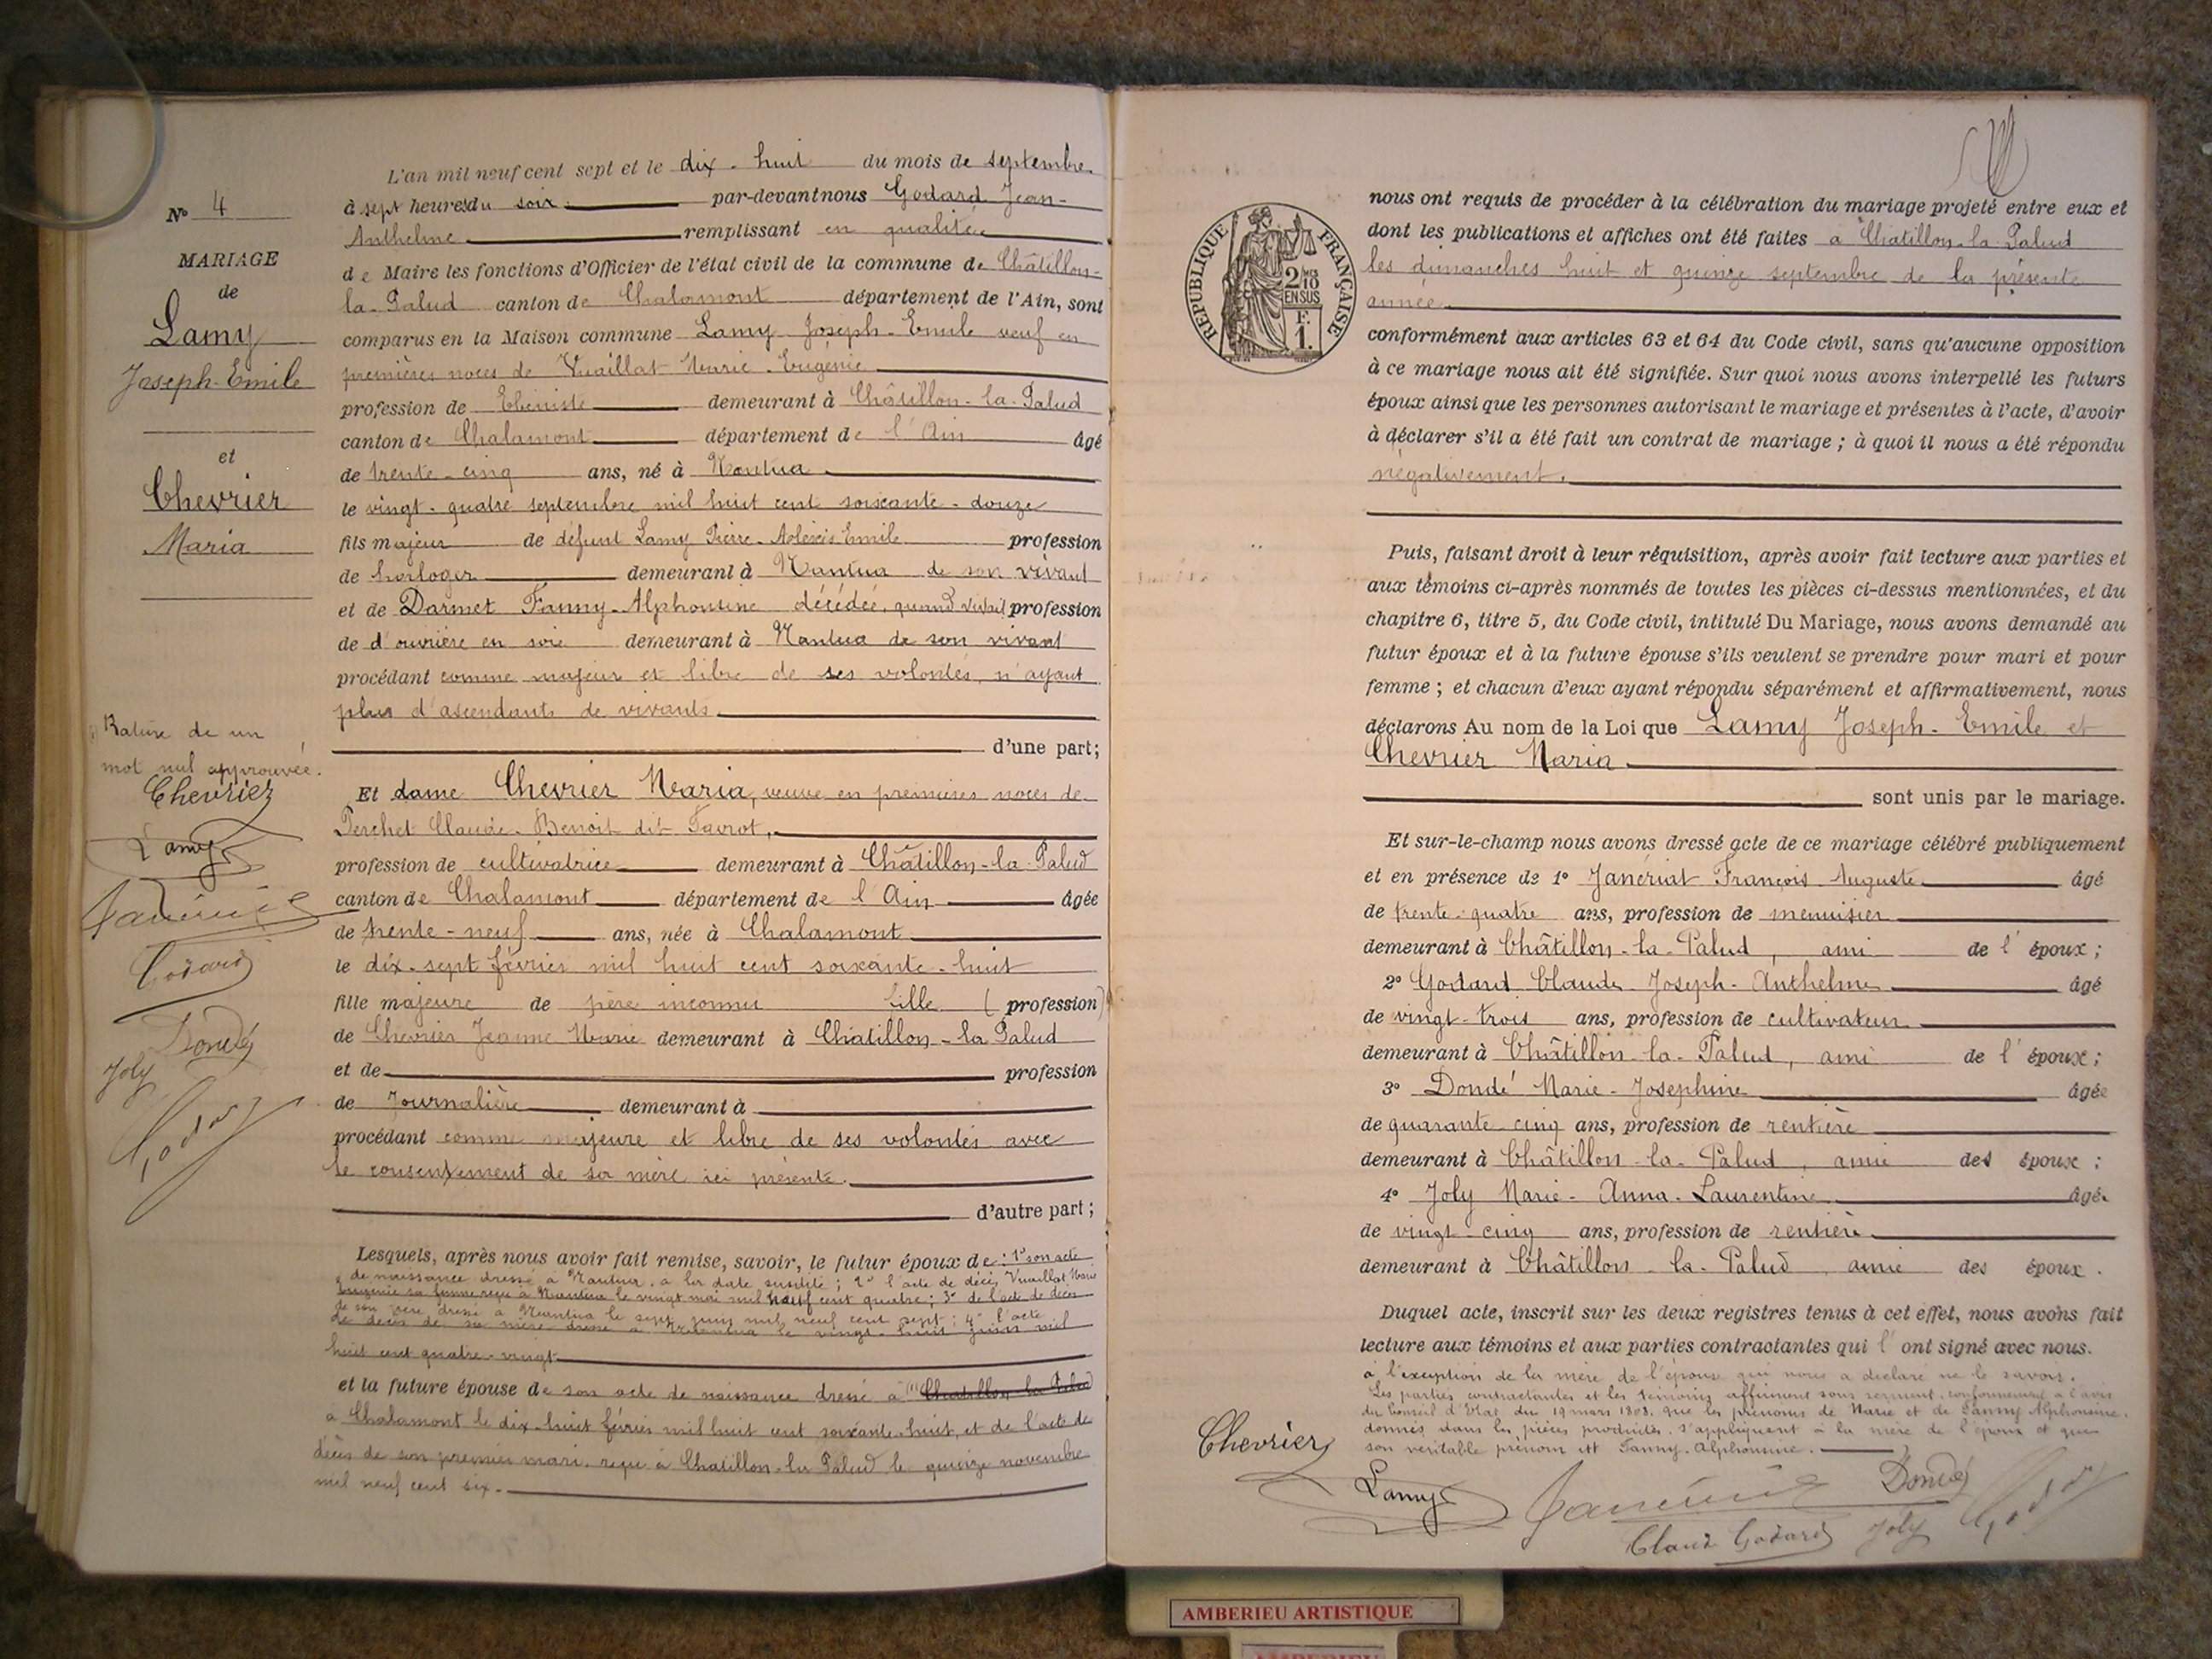 N° 4
MARIAGE
de
Lamy
Joseph-Emile
et
Chevrier
Maria
Rature de un
mot nul approuvée.
Chevrier
Lamy
Godard
Dondé
Joly
L'an mil neuf cent sept et le dix-huit du mois de septembre
à sept heures du soir par-devant nous Godard Jean-
Anthelme remplissant en qualité
de Maire les fonctions d'Officier de l'état civil de la commune de Châtillon-
la-Palud canton de Chalamont département de l'Ain, sont
comparus en la Maison commune Lamy Joseph-Emile veuf en
premières noces de Vuaillat Marie-Eugénie
profession de Ebéniste demeurant à Châtillon-la-Palud
canton de Chalamont département de l'Ain âgé
de trente-cinq ans, né à Nantua
le vingt-quatre septembre mil huit cent soixante-douze
fils majeur de défunt Lamy Pierre-Alexis Emile profession
de horloger demeurant à Nantua de son vivant
et de Darmet Fanny-Alphonsine décédée, quand vivait profession
de d'ouvrière en soie demeurant à Nantua de son vivant
procédant comme majeur et libre de ses volontés, n'ayant
plus d'ascendants de vivants.
d'une part;
Et dame Chevrier Maria, veuve en premières noces de
Perchet Claude-Benoit dit Favrot,
profession de cultivatrice demeurant à Châtillon-la-Palud
canton de Chalamont département de l'Ain âgée
de trente-neuf ans, née à Chalamont
le dix-sept février mil huit cent soixante-huit
fille majeure de père inconnu fille (profession)
de Chevrier Jeanne Marie demeurant à Châtillon-la Palud
et de profession
de Journalière demeurant à
procédant comme majeure et libre de ses volontés avec
le consentement de sa mère ici présente.
d'autre part;
Lesquels, après nous avoir fait remise, savoir, le futur époux de: 1° son acte
de naissance dressé à Nantua, à la date susdite; 2° l'acte de décès Vuaillat Marie
Eugénie sa femme reçu à Nantua le vingt mai mil neuf cent quatre; 3° de l'acte de décès
de son père dressé à Nantua le sept juin mil neuf cent sept; 4° l'acte
de décès de sa mère dressé à Nantua le vingt-huit juin mil
huit cent quatre-vingt
et la future épouse de son acte de naissance dressé à (1) Chatillon la Palud
à Chalamont le dix-huit février mil huit cent soixante-huit, et de l'acte de
décès de son premier mari, reçu à Chatillon-la Palud le quinze novembre
mil neuf cent six.
RÉPUBLIQUE FRANÇAISE
2/10
EN SUS
F.
1.
nous ont requis de procéder à la célébration du mariage projeté entre eux et
dont les publications et affiches ont été faites à Châtillon-la-Palud
les dimanches huit et quinze septembre de la présente
année
conformément aux articles 63 et 64 du Code civil, sans qu'aucune opposition
à ce mariage nous ait été signifiée. Sur quoi nous avons interpellé les futurs
époux ainsi que les personnes autorisant le mariage et présentes à l'acte, d'avoir
à déclarer s'il a été fait un contrat de mariage; à quoi il nous a été répondu
négativement.
Puis, faisant droit à leur réquisition, après avoir fait lecture aux parties et
aux témoins ci-après nommés de toutes les pièces ci-dessus mentionnées, et du
chapitre 6, titre 5, du Code civil, intitulé Du Mariage, nous avons demandé au
futur époux et à la future épouse s'ils veulent se prendre pour mari et pour
femme; et chacun d'eux ayant répondu séparément et affirmativement, nous
déclarons Au nom de la Loi que Lamy Joseph-Emile et
Chevrier Maria
sont unis par le mariage.
Et sur-le-champ nous avons dressé acte de ce mariage célébré publiquement
et en présence de 1° Janériat François Auguste âgé
de trente-quatre ans, profession de menuisier
demeurant à Châtillon-la-Palud, ami de l'époux;
2° Godard Claude-Joseph-Anthelme âgé
de vingt-trois ans, profession de cultivateur
demeurant à Châtillon-la-Palud, ami de l'époux;
3° Dondé Marie-Josephine âgée
de quarante-cinq ans, profession de rentière
demeurant à Châtillon-la-Palud, amie des époux;
4° Joly Marie-Anna-Laurentine âgée
de vingt-cinq ans, profession de rentière
demeurant à Châtillon-la-Palud amie des époux.
Duquel acte, inscrit sur les deux registres tenus à cet effet, nous avons fait
lecture aux témoins et aux parties contractantes qui l'ont signé avec nous.
à l'exception de la mère de l'épouse qui nous a déclaré ne le savoir.
Les parties contractantes et les témoins affirment sous serment, conformément à l'avis
du Conseil d'Etat du 19 mars 1808, que les prénoms de Marie et de Fanny Alphonsine,
donnés dans les pièces produites, s'appliquent à la mère de l'époux et que
son véritable prénom est Fanny-Alphonsine.
Chevrier
Lamy
Dondé
Claude Godard
Joly
AMBERIEU ARTISTIQUE
AMBERIEU